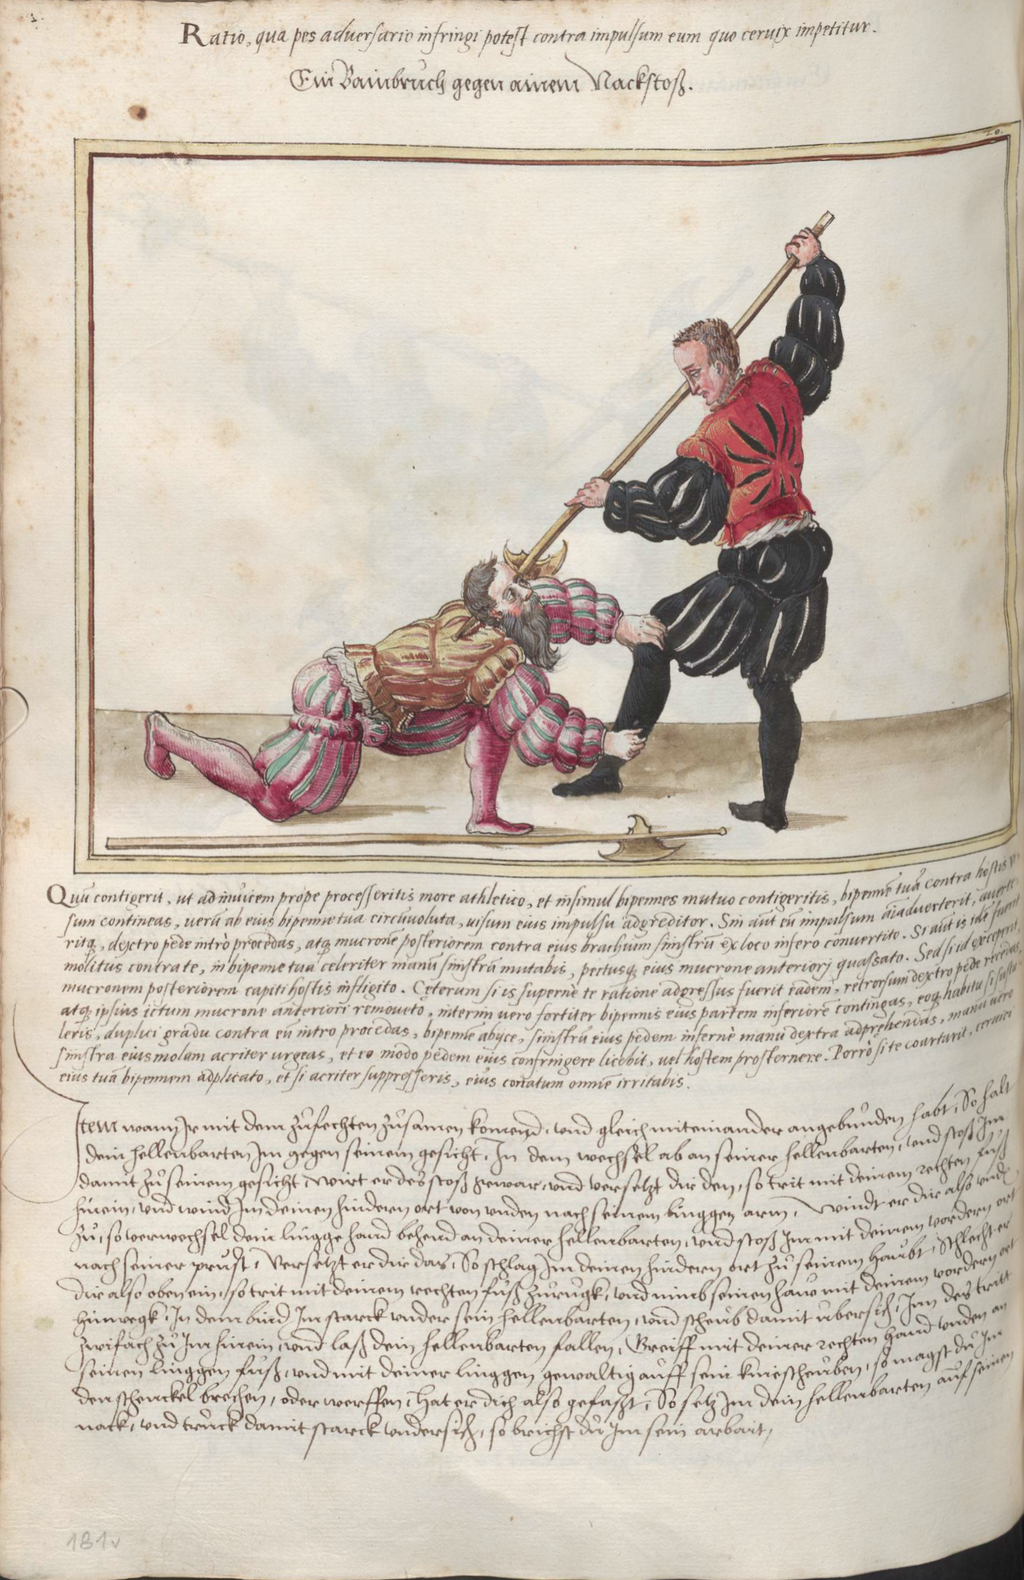 Ratio, qua pes adversario infringi potest contra impulsum eum quo cervix impetitur.
Ein Bainbruch gegen ainem Nackstoß.
20.
Quū contigerit, ut ad invicem prope processeritis more athletico, et insimul bipennes mutuo contigeritis, bipennē tuā contra hostis vi-
sum contineas, verū ab eius bipenne tua circūvoluta, visum eius impulsu adgreditor. Sin aūt eū impulsum aīadverterit, averte-
ritq, dextro pede intro procedas, atq mucronē posteriorem contra eius brachium sinistrū ex loco infero convertito. Si aūt is idē fuerit
molitus contra te, in bipenne tua celeriter manū sinistrā mutabis, pectusq eius mucrone anteriori quassato. Sed si id exceperit,
mucronem posteriorem capiti hostis infligito. Ceterum si is superne te ratione adgressus fuerit eadem, retrorsum dextro pede recedas,
atq ipsius ictum mucrone anteriori removeto, interim vero fortiter bipennis eius partem inferiorē contingas, eoq habitu si sustu-
leris, duplici gradu contra eū intro procedas, bipennē abyce, sinistrū eius pedem infernè manu dextra adprehendas, manu vero
sinistra eius molam acriter urgeas, et eo modo pedem eius confringere licebit, vel hostem prosternere. Porrò si te coartarit, cervici
eius tuā bipennem adplicato, et si acriter suppresseris, eius conatum omnē irritabis.
Item wann Jr mit dem zůfechten zůsamen komend, und gleich miteinander angebunden habt, So halt
dein hellenbarten Jm gegen seinem gesicht, Jn dem wechsel ab an seiner hellenbarten, und stoß Jm
damit zů seinem gesicht, Wirt er des stoß gwar, und versetzt dir den, so trit mit deinem rechten fůß
hinein, und wind Jm deinen hindern ort von unden nach seinem linggen arm, Windt er dir also unden
zů, so verwechsel dein lingge hand behend an deiner hellenbarten, und stoß Jm mit deinem vordern ort
nach seiner prust, Versetzt er dir das, So schlag Jm deinen hindern ort zů seinem haubt, Schlecht er
dir also oben ein, so trit mit deinem rechten fůß zurugk, und nimb seinen haw mit deinem vordern ort
hinwegk, Jn dem bind Jm starck under sein hellenbarten, und scheub damit ubersich, Jnn des tritt
zwifach zů Jm hinein, und laß dein hellenbarten fallen, Greiff mit deiner rechten hand unden an
seinen linggen fůß, und mit deiner linggen gewaltig auff sein kniescheuben, so magst dů Jm
den schenckel brechen, oder werffen, Hat er dich also gefaßt, So setz Jm dein hellenbarten auf seinen
nack, und truck damit starck undersich, so brichst dů Jm sein arbait,
181v